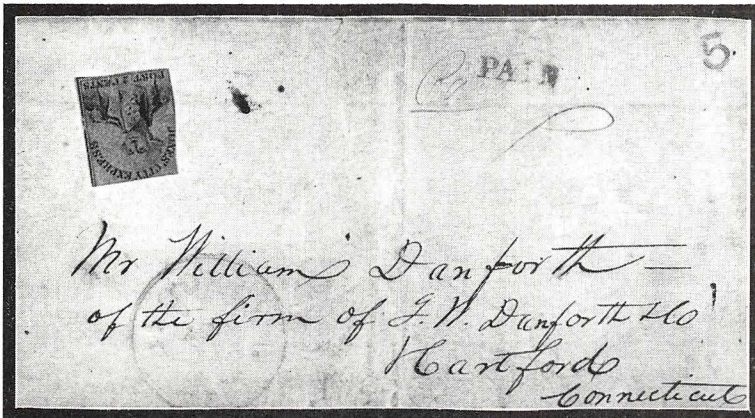 5
PAID
POST 2 CENTS
CITY EXPRESS
Mr William Danforth
of the firm of J. W. Danforth & Co
Hartford
Connecticut